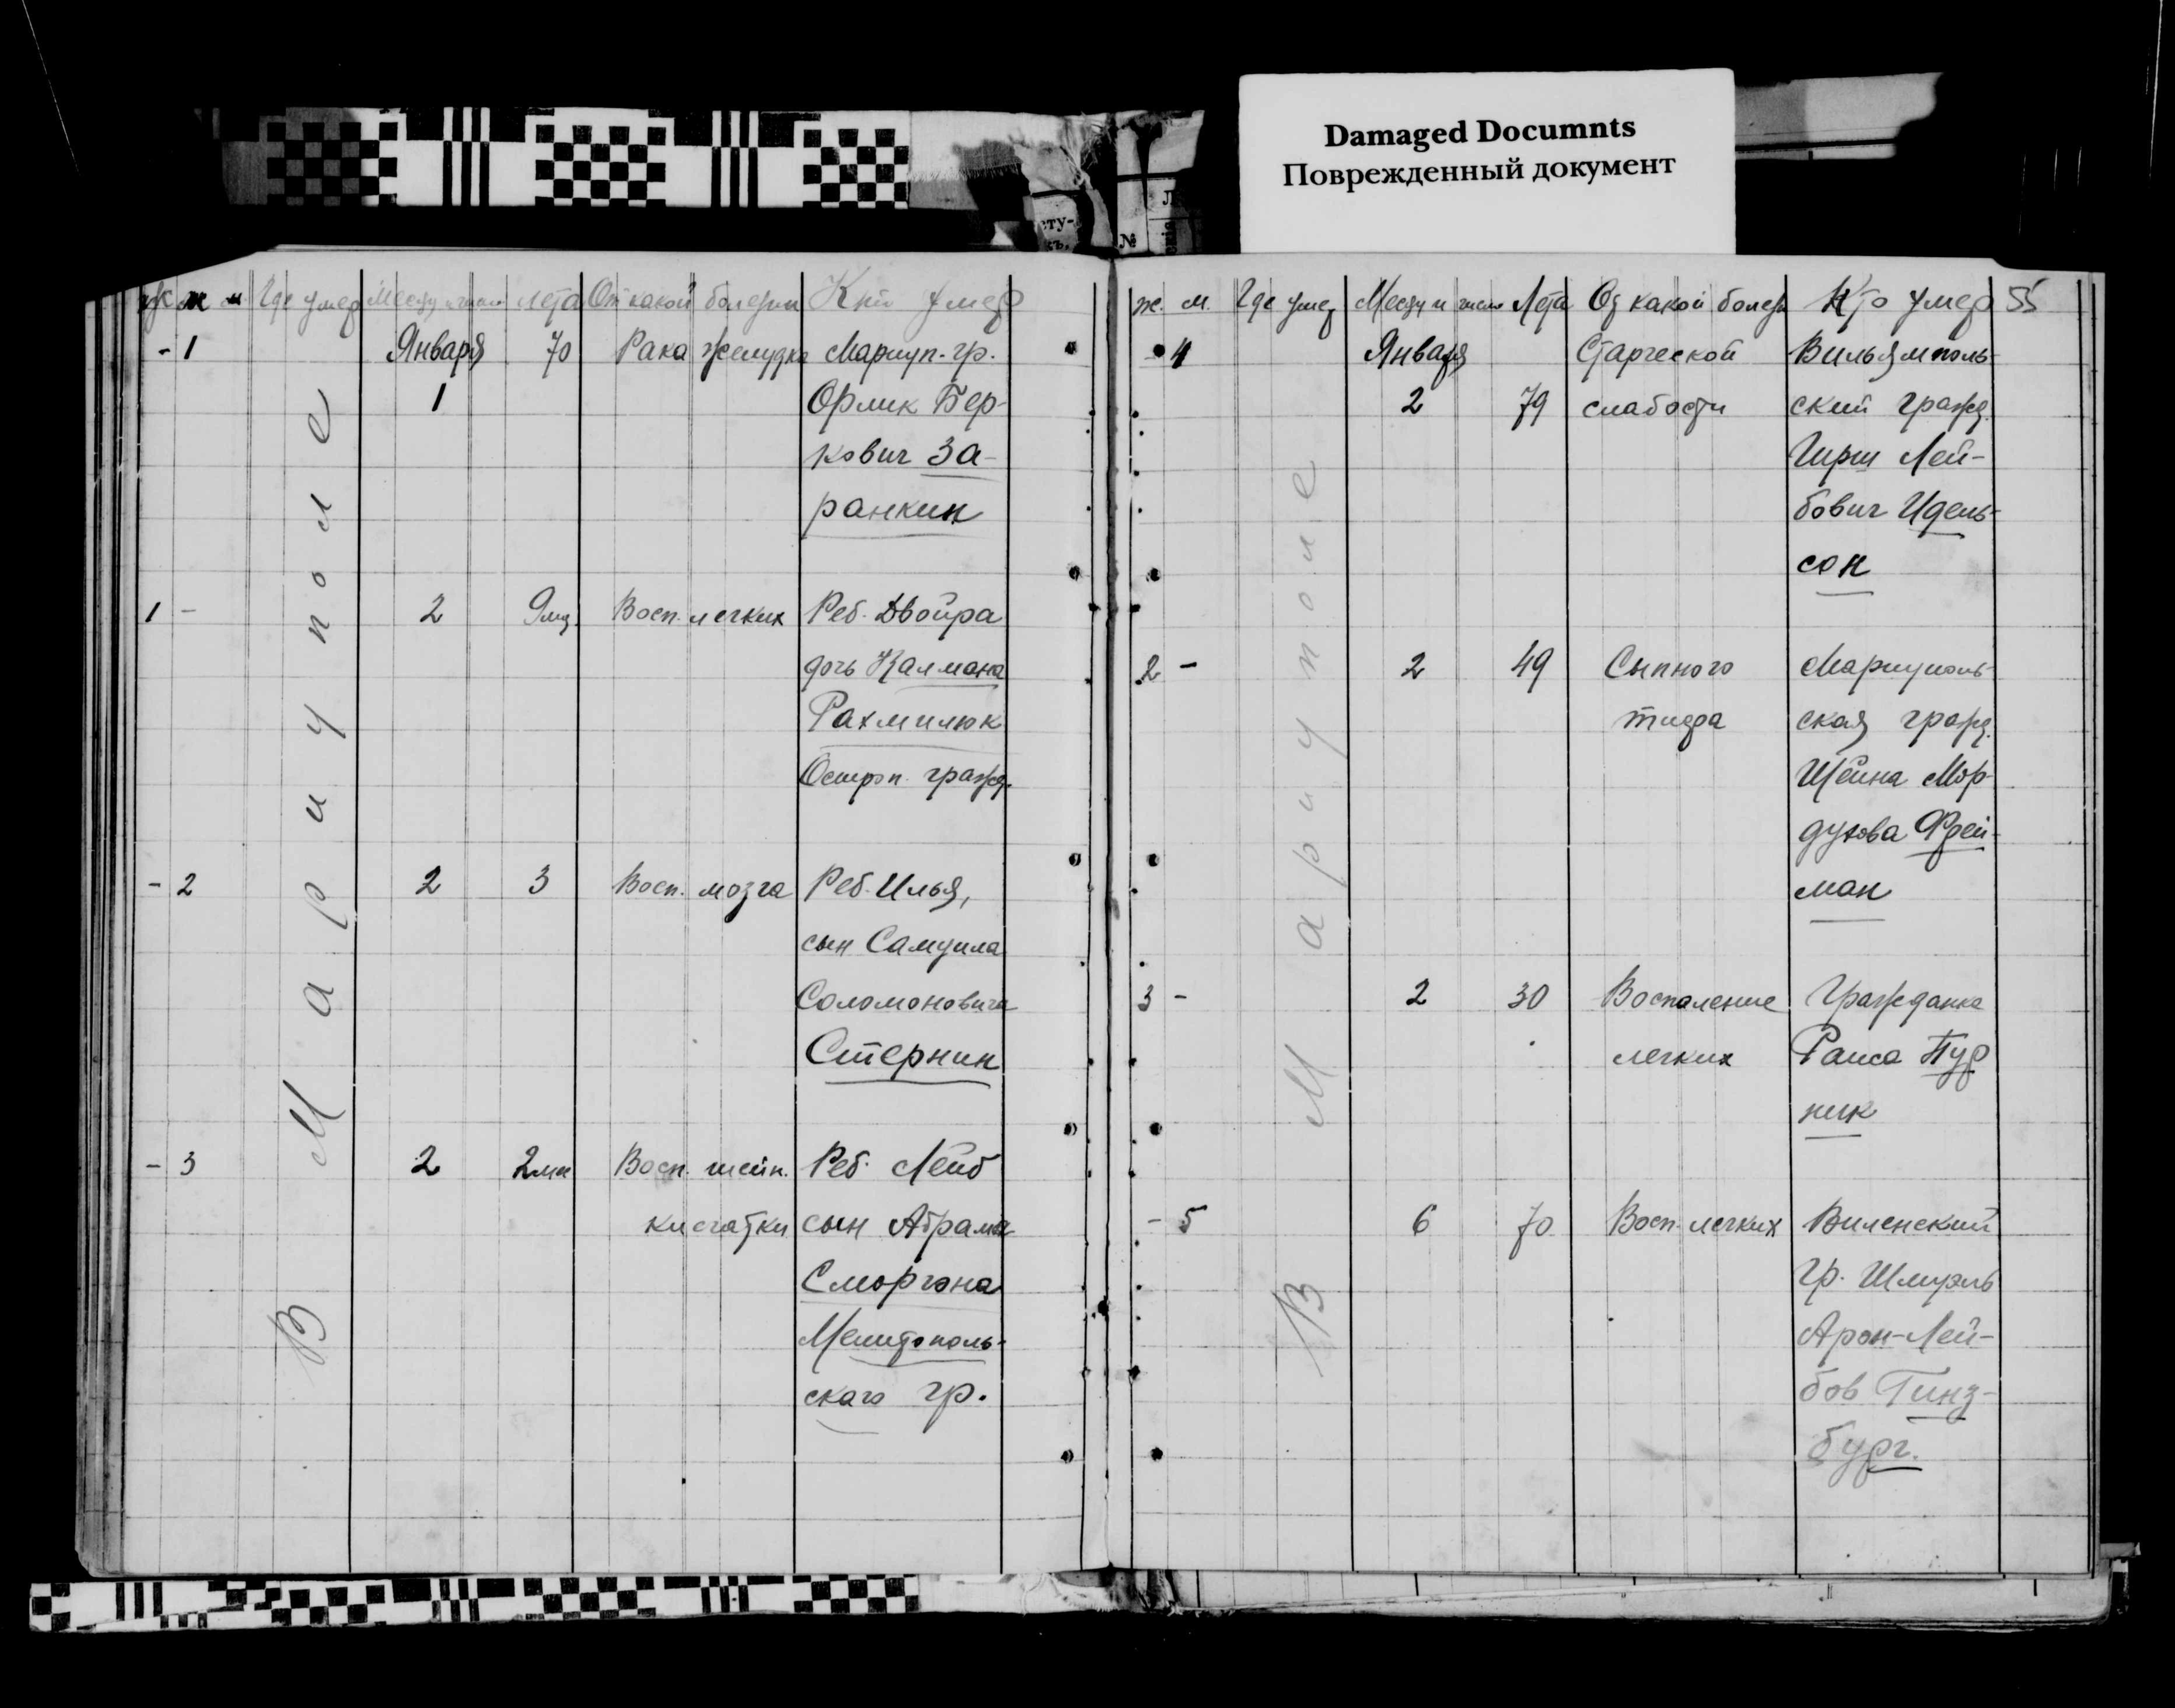 Damaged Documnts
Поврежденный документ
ету-
№
ж м Где умер Месяц и число лета От какой болезни Кто умер
В Мариуполе
- 1 Января 70 Рака желудка Мариуп. гр.
1 Орлик Бер-
кович За-
ранкин
1 - 2 9 мц. Восп. легких Реб. Двойра
дочь Калмана
Рахмилюк
Остроп. гражд.
- 2 2 3 Восп. мозга Реб. Илья,
сын Самуила
Соломоновича
Стернин
- 3 2 2 мц Восп. Реб. Лейб
сын Абрама
Сморгона
Мелитополь-
ского гр.
ж. м. Где умер Месяц и число Лета От какой болезн Кто умер 55
В Мариуполе
4 Января Старческой Вильямполь-
2 79 слабости ский гражд.
Гирш Лей-
бович Идель-
сон
2 - 2 49 Сыпного Мариуполь-
тифа ская гражд.
Шейна Мор-
духова Фрей-
ман
3 - 2 30 Воспаление Гражданка
легких Раиса Пуд
ник
- 5 6 70 Восп. легких Виленский
гр. Шмуэль
Арон-Лей-
бов Гинз-
бург.